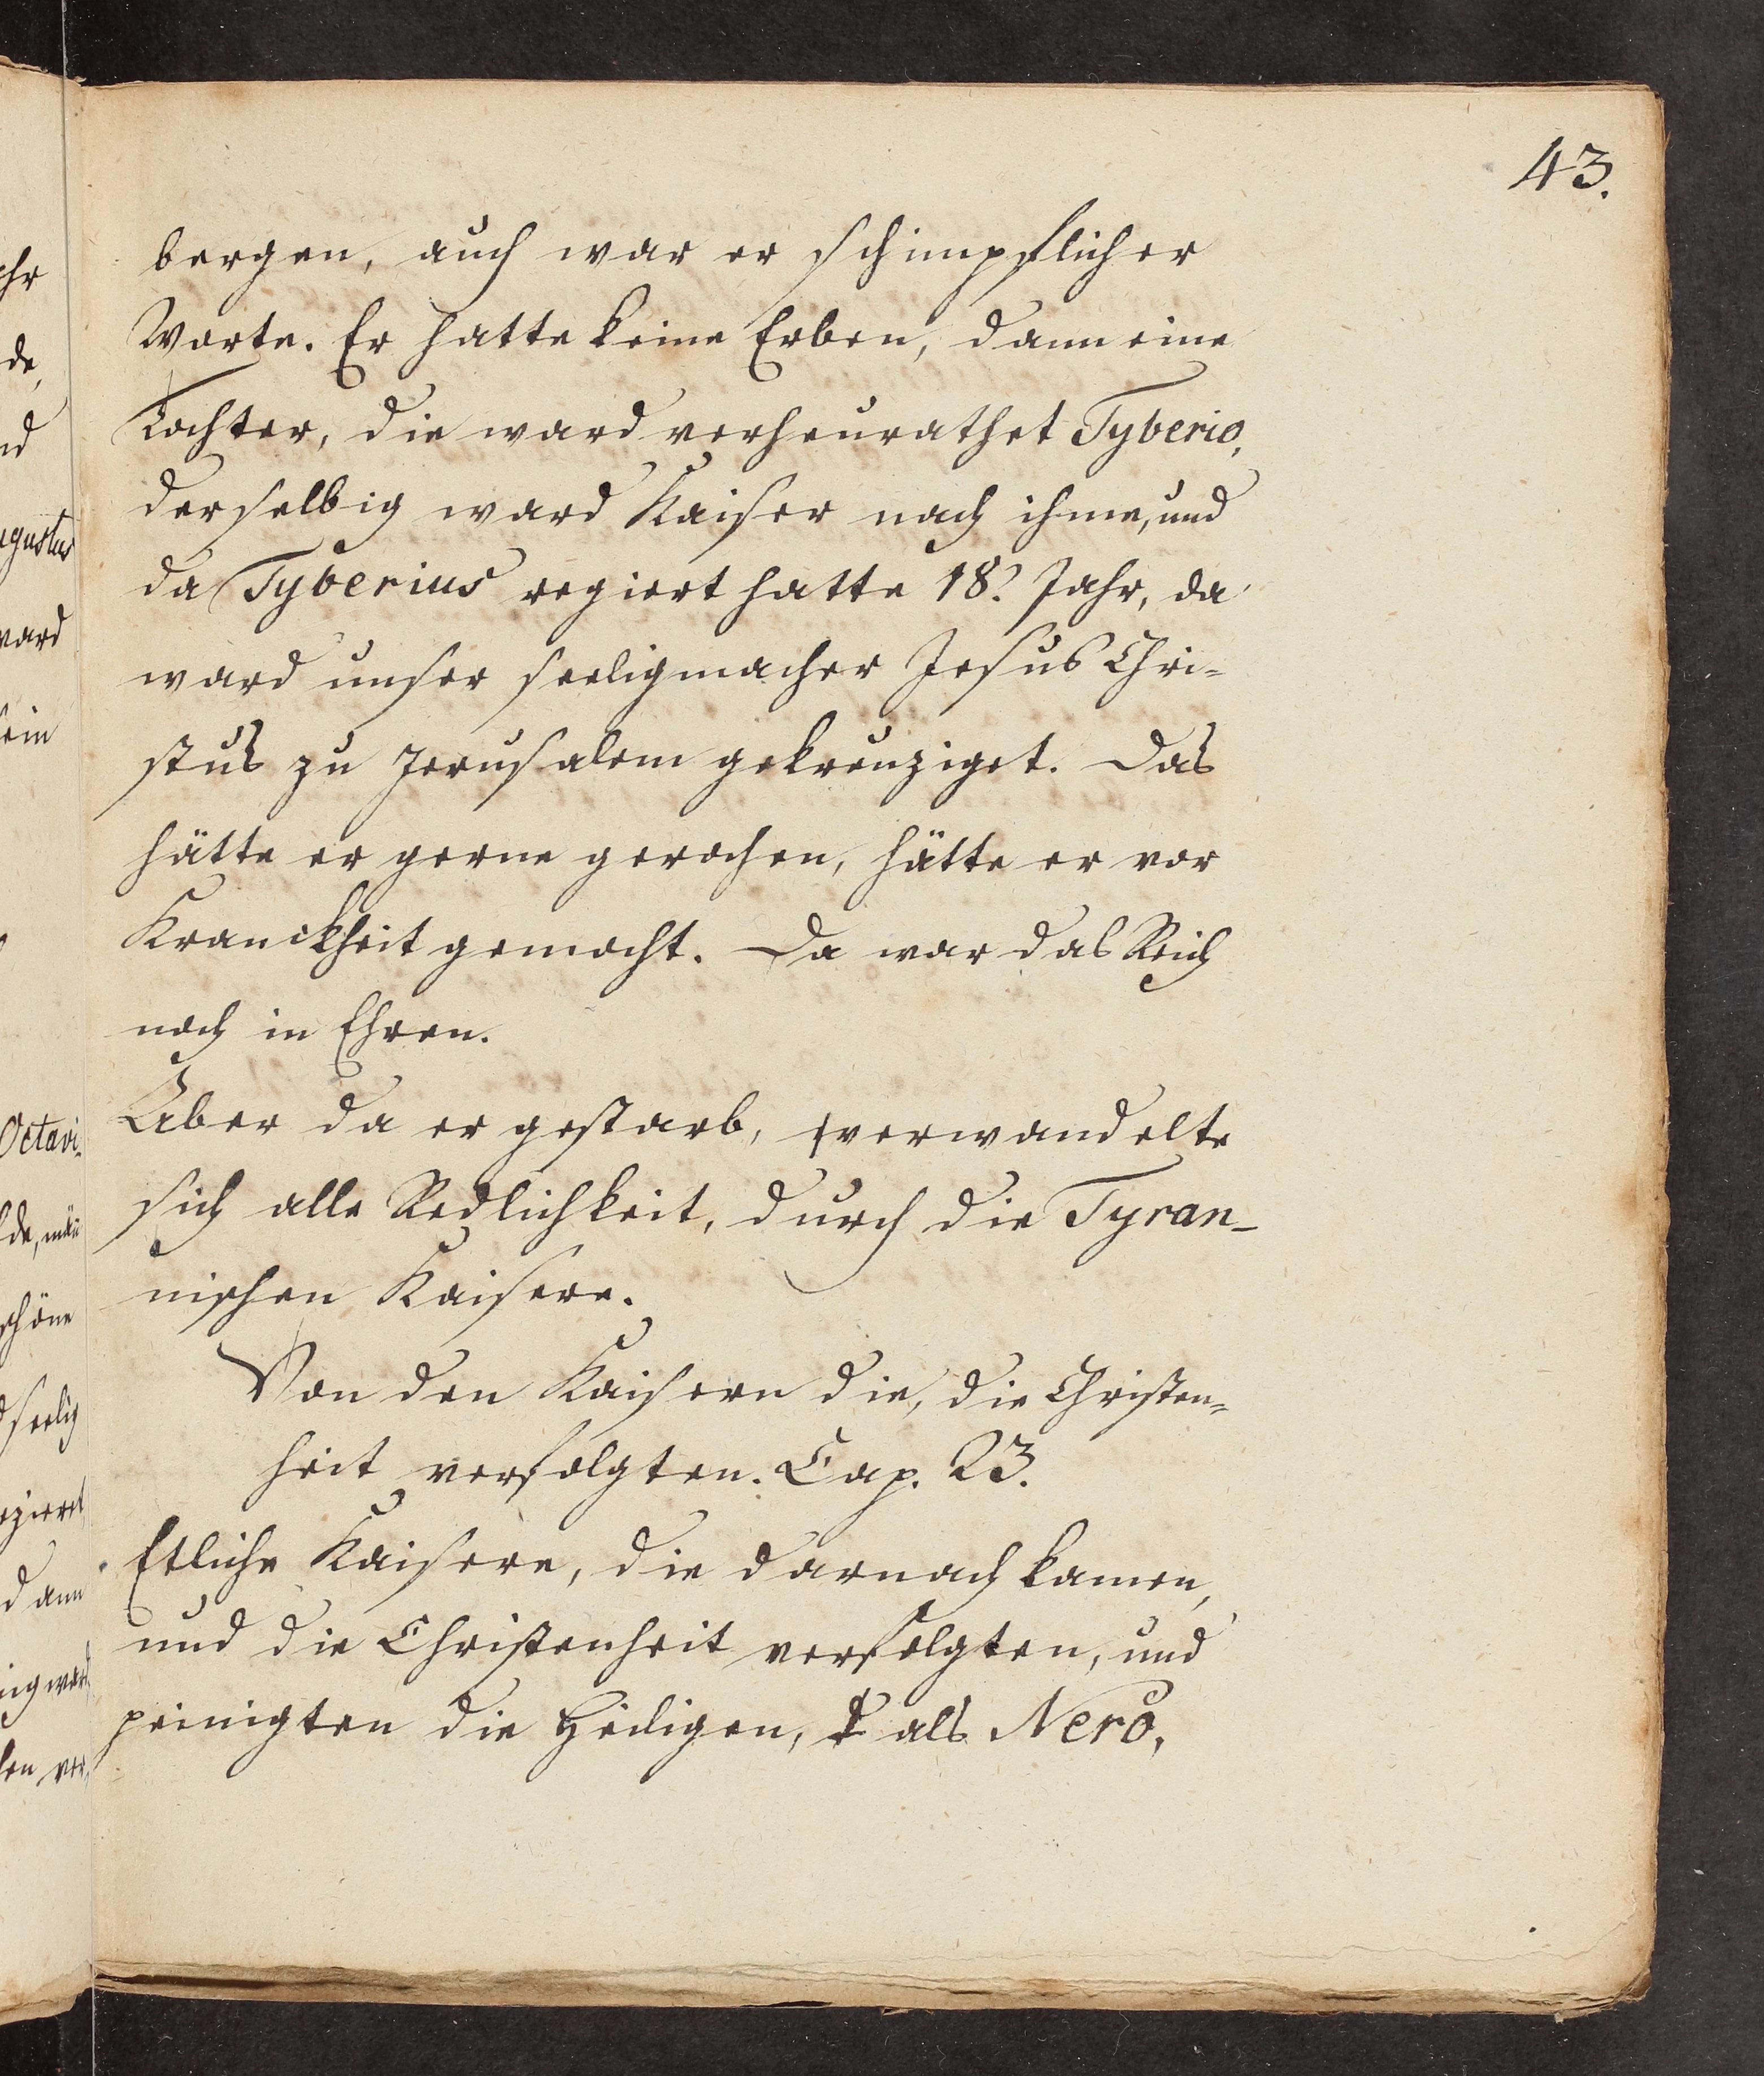 43.
bergen, auch war er schimpflicher
Worte. Er hatte keine Erben, dann eine
Tochter, die ward verheurathet Tyberio,
derselbig ward Kaiser nach ihme, und
da Tyberius regiert hatte 18. Jahr, da
ward unser seeligmacher Jesus Chri-
stus zu Jerusalem gekreuziget. Das
hätte er gerne gerochen, hätte er vor
Kranckheit gemocht. Da war das Reich
noch in Ehren.
Aber da er gestarb, verwandelte
sich alle Redlichkeit, durch die Tyran-
nischen Kaisere.
Von den Kaisern die, die Christen-
heit verfolgten. Cap. 23.
Etliche Kaisere, die darnach kamen,
und die Christenheit verfolgten, und
peinigten die Heiligen, als Nero,